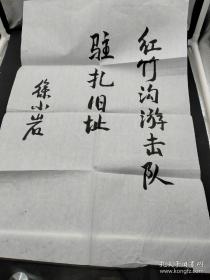 红竹沟游击队
驻扎旧址
徐小岩